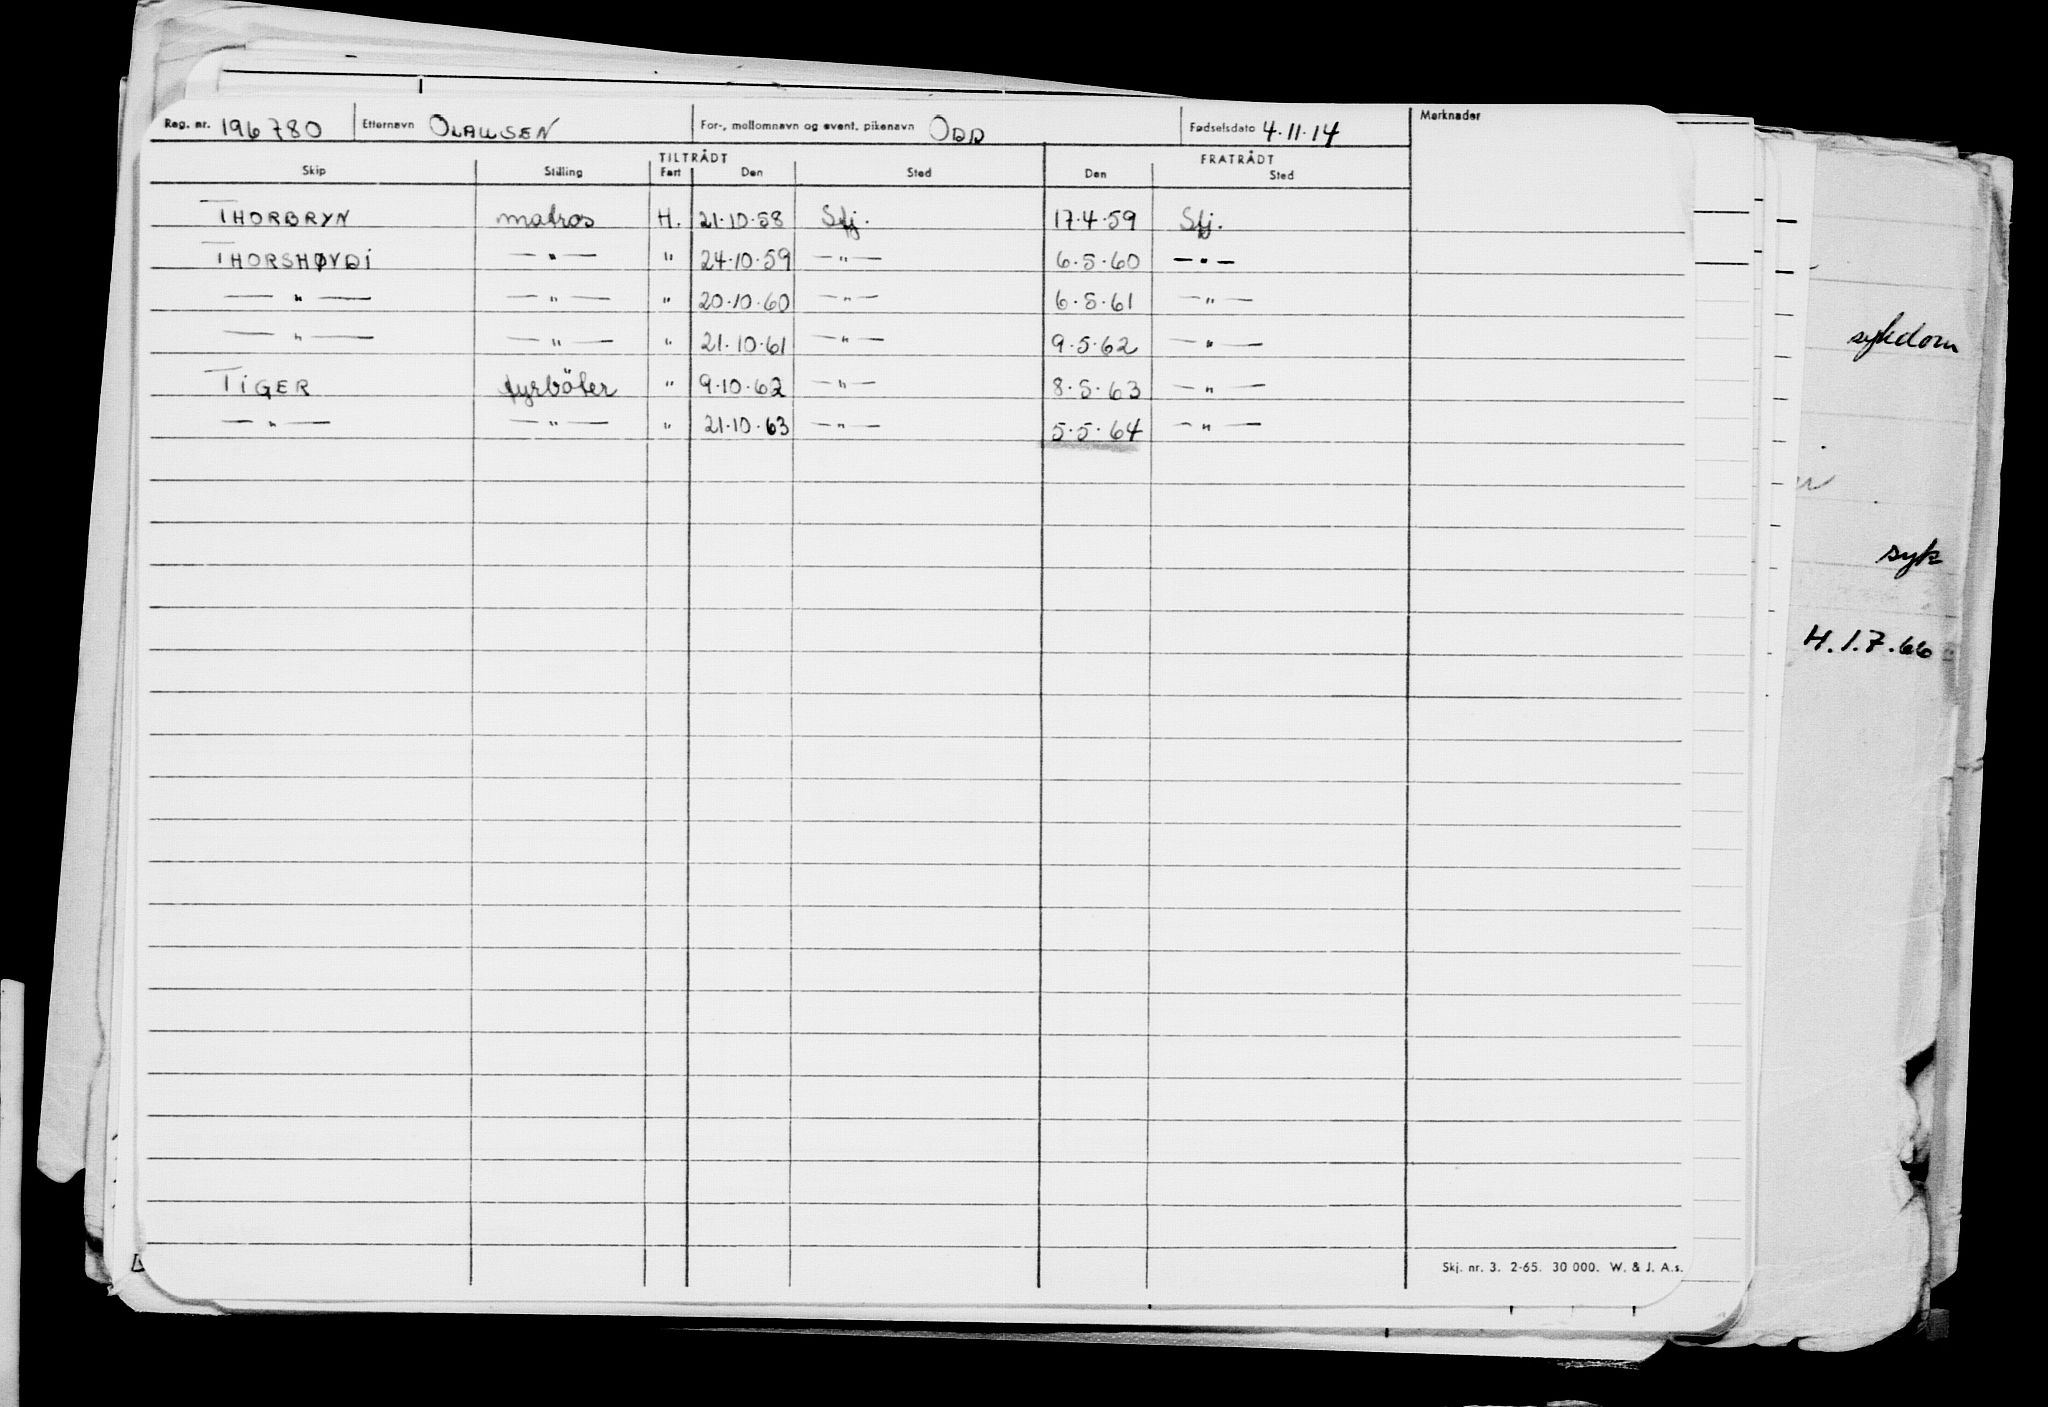 Reg. nr. 196780 Etternavn OLAUSEN For-, mellomnavn og event. pikenavn ODD Fødselsdato 4.11.14 Merknader
TILTRÅDT FRATRÅDT
Skip Stilling Fart Den Sted Den Sted
THORBRYN matros H. 21.10.58 Sfj. 17.4.59 Sfj.
THORSHØVDI — " — " 24.10.59 — " — 6.5.60 — " —
— " — — " — " 20.10.60 — " — 6.5.61 — " —
— " — — " — " 21.10.61 — " — 9.5.62 — " —
TIGER fyrböter " 9.10.62 — " — 8.5.63 — " —
— " — — " — " 21.10.63 — " — 5.5.64 — " —
sykdom
syk
H. 1.7.66
Skj. nr. 3. 2-65. 30 000. W. & J. A.s.